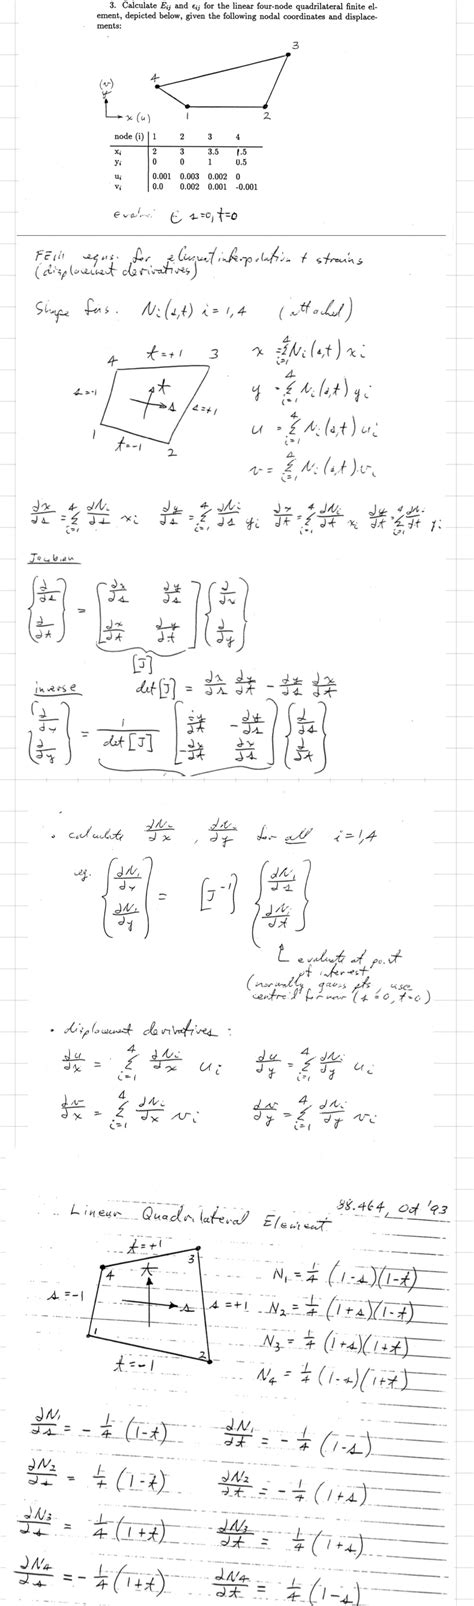 3. Calculate Eij and εij for the linear four-node quadrilateral finite el-
ement, depicted below, given the following nodal coordinates and displace-
ments:
3
4
(v)
y
x (u)
1
2
node (i) 1 2 3 4
xi 2 3 3.5 1.5
yi 0 0 1 0.5
ui 0.001 0.003 0.002 0
vi 0.0 0.002 0.001 -0.001
@ s=0, t=0
FEM eqns. for element interpolation + strains
(displacement derivatives)
Shape fns. Ni(s,t) i=1,4 (attached)
t=+1
4
3
s=-1
t
s
s=+1
1
t=-1
2
x = Σ(i=1 to 4) Ni(s,t) xi
y = Σ(i=1 to 4) Ni(s,t) yi
u = Σ(i=1 to 4) Ni(s,t) ui
v = Σ(i=1 to 4) Ni(s,t) vi
∂x/∂s = Σ(i=1 to 4) ∂Ni/∂s xi ∂y/∂s = Σ(i=1 to 4) ∂Ni/∂s yi ∂x/∂t = Σ(i=1 to 4) ∂Ni/∂t xi ∂y/∂t = Σ(i=1 to 4) ∂Ni/∂t yi
Jacobian
{∂/∂s ; ∂/∂t} = [∂x/∂s ∂y/∂s ; ∂x/∂t ∂y/∂t] {∂/∂x ; ∂/∂y}
[J]
inverse det[J] = ∂x/∂s ∂y/∂t - ∂y/∂s ∂x/∂t
{∂/∂x ; ∂/∂y} = 1/det[J] [∂y/∂t -∂y/∂s ; -∂x/∂t ∂x/∂s] {∂/∂s ; ∂/∂t}
• calculate ∂Ni/∂x , ∂Ni/∂y for all i=1,4
eg. {∂N1/∂x ; ∂N1/∂y} = [J⁻¹] {∂N1/∂s ; ∂N1/∂t}
evaluate at point
of interest
(normally gauss pts, use
centroid for now (s=0, t=0)
• displacement derivatives:
∂u/∂x = Σ(i=1 to 4) ∂Ni/∂x ui ∂u/∂y = Σ(i=1 to 4) ∂Ni/∂y ui
∂v/∂x = Σ(i=1 to 4) ∂Ni/∂x vi ∂v/∂y = Σ(i=1 to 4) ∂Ni/∂y vi
88.464, Oct '93
Linear Quadrilateral Element
t=+1
3
4
t
s=-1
s
s=+1
1
2
t=-1
N1 = 1/4 (1-s)(1-t)
N2 = 1/4 (1+s)(1-t)
N3 = 1/4 (1+s)(1+t)
N4 = 1/4 (1-s)(1+t)
∂N1/∂s = -1/4 (1-t) ∂N1/∂t = -1/4 (1-s)
∂N2/∂s = 1/4 (1-t) ∂N2/∂t = -1/4 (1+s)
∂N3/∂s = 1/4 (1+t) ∂N3/∂t = 1/4 (1+s)
∂N4/∂s = -1/4 (1+t) ∂N4/∂t = 1/4 (1-s)